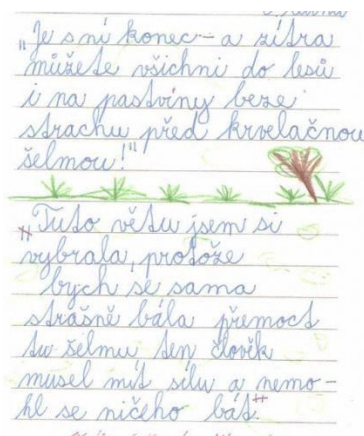 "Je s ní konec – a zítra
můžete všichni do lesů
i na pastviny beze
strachu před krvelačnou
šelmou!"
"Tuto větu jsem si
vybrala, protože
bych se sama
strašně bála přemoct
tu šelmu ten člověk
musel mít sílu a nemo-
hl se ničeho bát."